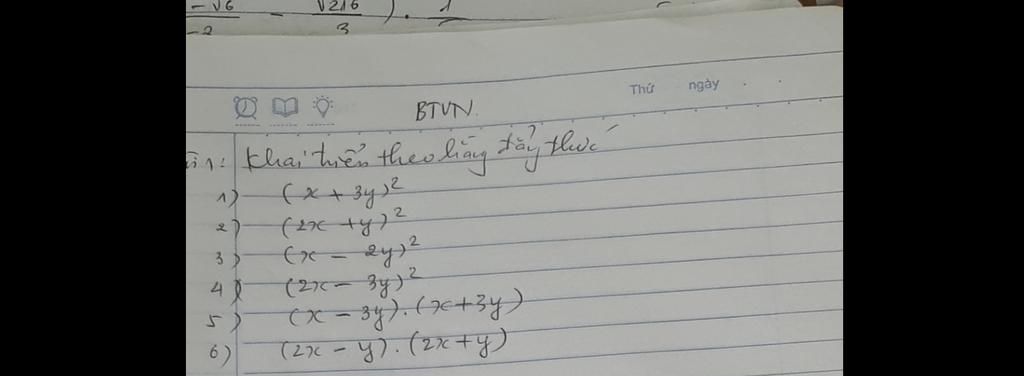 -√6 - √216 ) . 1
-2 3
Thứ ngày
BTVN.
1: Khai triển theo hằng đẳng thức
1) (x + 3y)²
2) (2x + y)²
3) (x - 2y)²
4) (2x - 3y)²
5) (x - 3y).(x + 3y)
6) (2x - y).(2x + y)